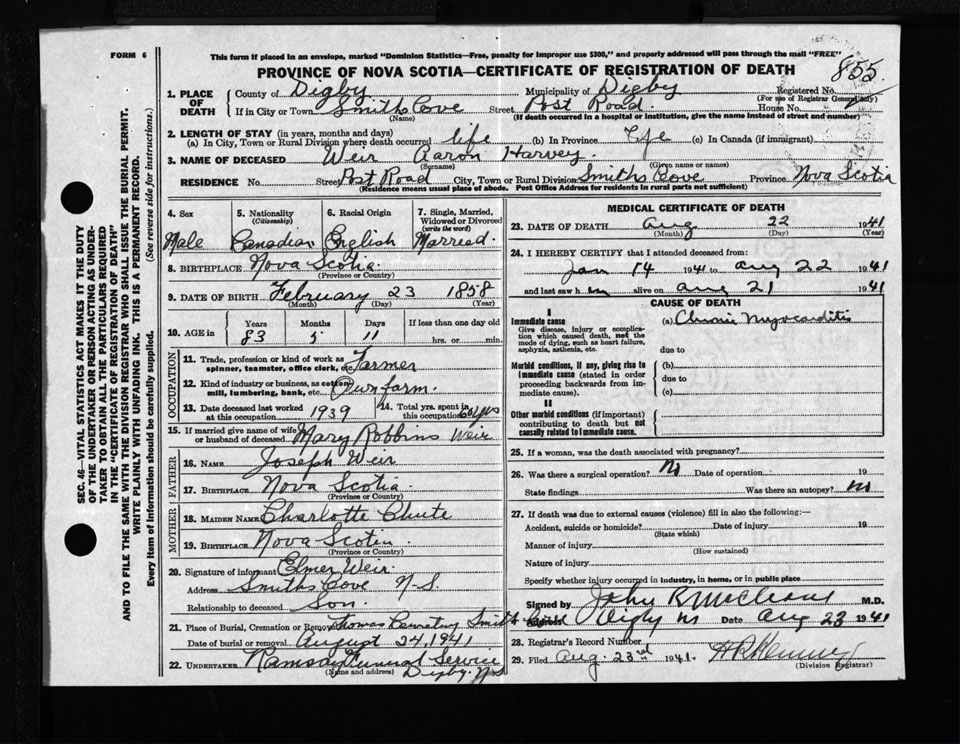 FORM 6
This form if placed in an envelope, marked "Dominion Statistics—Free, penalty for improper use $300," and properly addressed will pass through the mail "FREE"
PROVINCE OF NOVA SCOTIA—CERTIFICATE OF REGISTRATION OF DEATH
855
1. PLACE OF DEATH County of Digby Municipality of Digby Registered No. (For use of Registrar General only)
If in City or Town Smiths Cove (Name) Street Post Road House No.
(If death occurred in a hospital or institution, give the name instead of street and number)
2. LENGTH OF STAY (in years, months and days)
(a) In City, Town or Rural Division where death occurred life (b) In Province life (c) In Canada (if immigrant)
3. NAME OF DECEASED Weir Aaron Harvey
(Surname) (Given name or names)
RESIDENCE No. Street Post Road City, Town or Rural Division Smiths Cove Province Nova Scotia
(Residence means usual place of abode. Post Office Address for residents in rural parts not sufficient)
4. Sex Male
5. Nationality (Citizenship) Canadian
6. Racial Origin English
7. Single, Married, Widowed or Divorced (write the word) Married
8. BIRTHPLACE Nova Scotia
(Province or Country)
9. DATE OF BIRTH February 23 1858
(Month) (Day) (Year)
10. AGE in Years Months Days If less than one day
83 5 11 hrs. or min.
OCCUPATION
11. Trade, profession or kind of work as spinner, teamster, office clerk, etc. Farmer
12. Kind of industry or business, as cotton mill, lumbering, bank, etc. Own farm
13. Date deceased last worked at this occupation 1939
14. Total yrs. spent in this occupation
15. If married give name of wife or husband of deceased Mary Robbins Weir
FATHER
16. NAME Joseph Weir
17. BIRTHPLACE Nova Scotia
(Province or Country)
MOTHER
18. MAIDEN NAME Charlotte Chute
19. BIRTHPLACE Nova Scotia
(Province or Country)
20. Signature of informant Elmer Weir
Address Smiths Cove N-S.
Relationship to deceased Son
21. Place of Burial, Cremation or Removal Thomas Cemetery Smith Cove
Date of burial or removal August 24, 1941
22. UNDERTAKER Funeral Service
(Name and address) Digby. N-S
MEDICAL CERTIFICATE OF DEATH
23. DATE OF DEATH Aug 22 1941
(Month) (Day) (Year)
24. I HEREBY CERTIFY that I attended deceased from:
Jan 14 1941 to Aug 22 1941
and last saw him alive on Aug 21 1941
CAUSE OF DEATH
I
Immediate cause (a) Chronic Myocarditis
Give disease, injury or complication which caused death, not the mode of dying, such as heart failure, asphyxia, asthenia, etc.
due to
Morbid conditions, if any, giving rise to immediate cause (stated in order proceeding backwards from immediate cause).
(b)
due to
(c)
II
Other morbid conditions (if important) contributing to death but not causally related to immediate cause.
25. If a woman, was the death associated with pregnancy?
26. Was there a surgical operation? No Date of operation 19
State findings Was there an autopsy? No
27. If death was due to external causes (violence) fill in also the following:—
Accident, suicide or homicide? Date of injury 19
(State which)
Manner of injury
(How sustained)
Nature of injury
Specify whether injury occurred in industry, in home, or in public place
Signed by John R McCleave M.D.
Address Digby NS Date Aug 23 1941
28. Registrar's Record Number
29. Filed Aug. 23rd 1941.
(Division Registrar)
SEC. 46—VITAL STATISTICS ACT MAKES IT THE DUTY
OF THE UNDERTAKER OR PERSON ACTING AS UNDER-
TAKER TO OBTAIN ALL THE PARTICULARS REQUIRED
IN THE "CERTIFICATE OF REGISTRATION OF DEATH"
AND TO FILE THE SAME WITH THE DIVISION REGISTRAR WHO SHALL ISSUE THE BURIAL PERMIT.
WRITE PLAINLY WITH UNFADING INK. THIS IS A PERMANENT RECORD.
Every item of information should be carefully supplied. (See reverse side for instructions.)